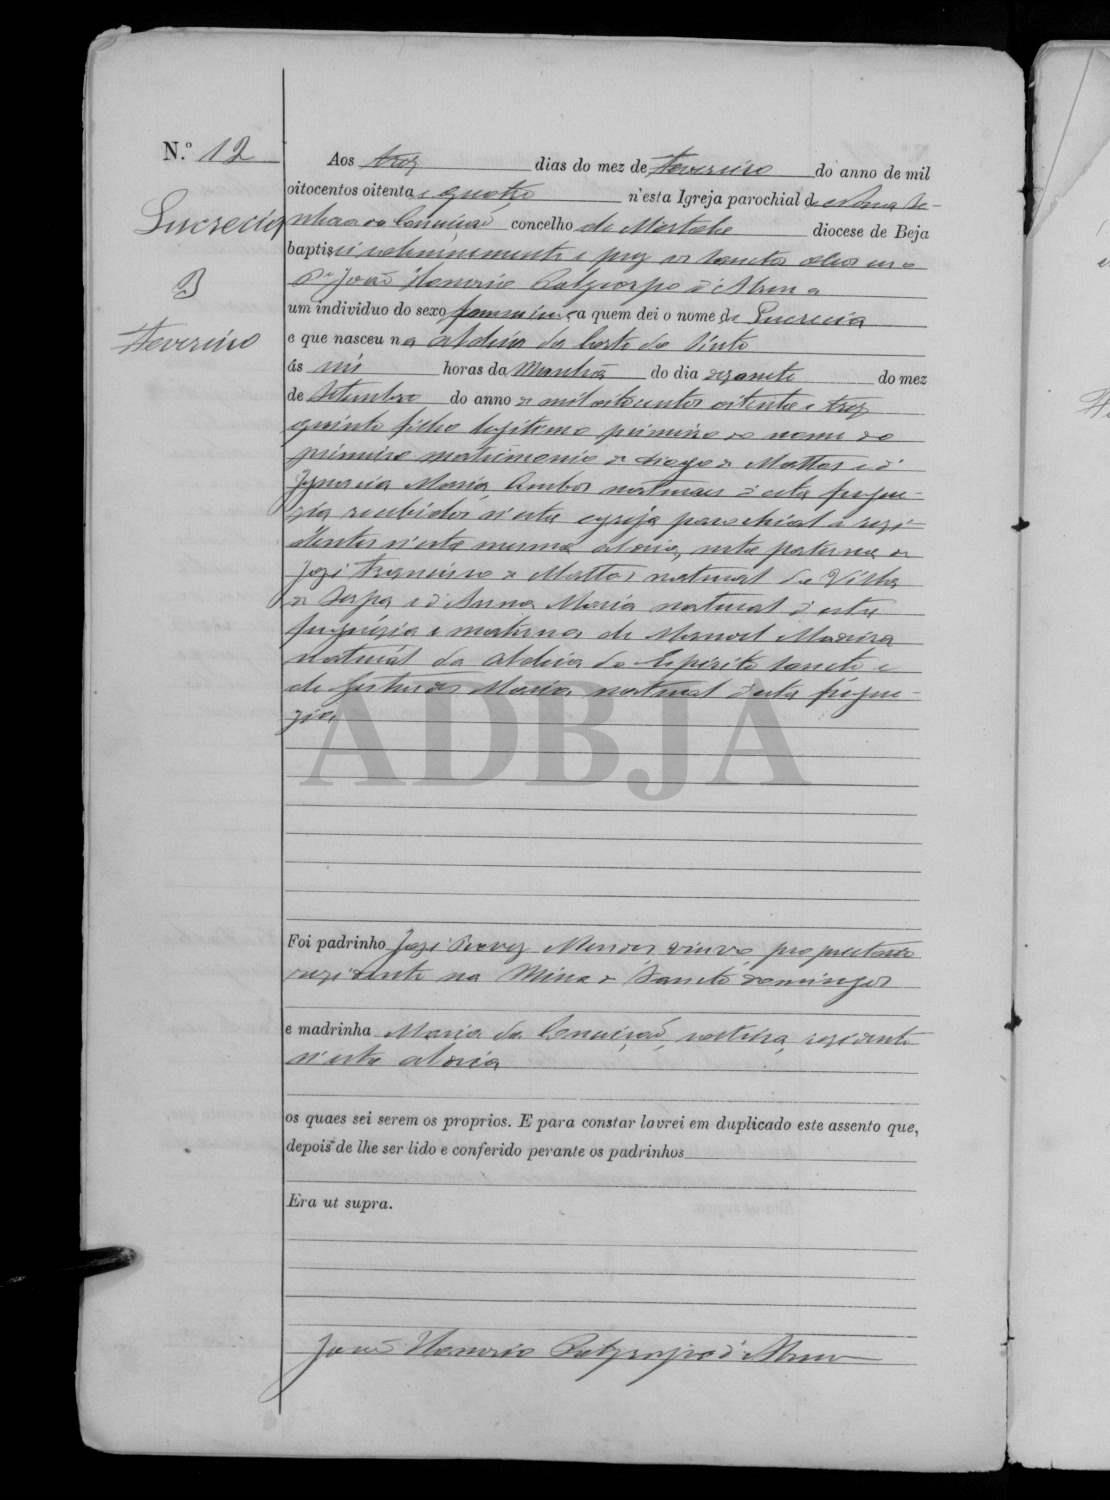 N.º 12
Lucrecia
3
Fevereiro
Aos trez dias do mez de Fevereiro do anno de mil
oitocentos oitenta e quatro n'esta Igreja parochial de Nossa Se-
nhora da Conceição concelho de Mertola diocese de Beja
baptisei solemnemente e puz os sanctos oleos eu o
P.e João Honorio d'Abreu
um individuo do sexo feminino a quem dei o nome de Lucrecia
e que nasceu na aldeia da Corte do Pinto
ás horas da Manhã do dia dezasete do mez
de Setembro do anno de mil oitocentos oitenta e trez
quinto filho legitimo primeiro do nome do
primeiro matrimonio de Diogo de Mattos e d'
Ignacia Maria Ambos naturaes d'esta fregue-
zia recebidos n'esta egreja parochial e rezi-
dentes n'esta mesma aldeia, neta paterna de
José Francisco de Mattos natural da Villa
de Serpa e d'Anna Maria natural d'esta
freguezia e materna de Manoel Moreira
natural da aldeia do Espirito Sancto e
de Gertrudes Maria natural d'esta fregue-
zia
ADBJA
Foi padrinho José Mendes viuvo, proprietario
rezidente na Mina de Sancto Domingos
e madrinha Maria da Conceição, solteira, rezidente
n'esta aldeia
os quaes sei serem os proprios. E para constar lavrei em duplicado este assento que,
depois de lhe ser lido e conferido perante os padrinhos
Era ut supra.
João Honorio d'Abreu